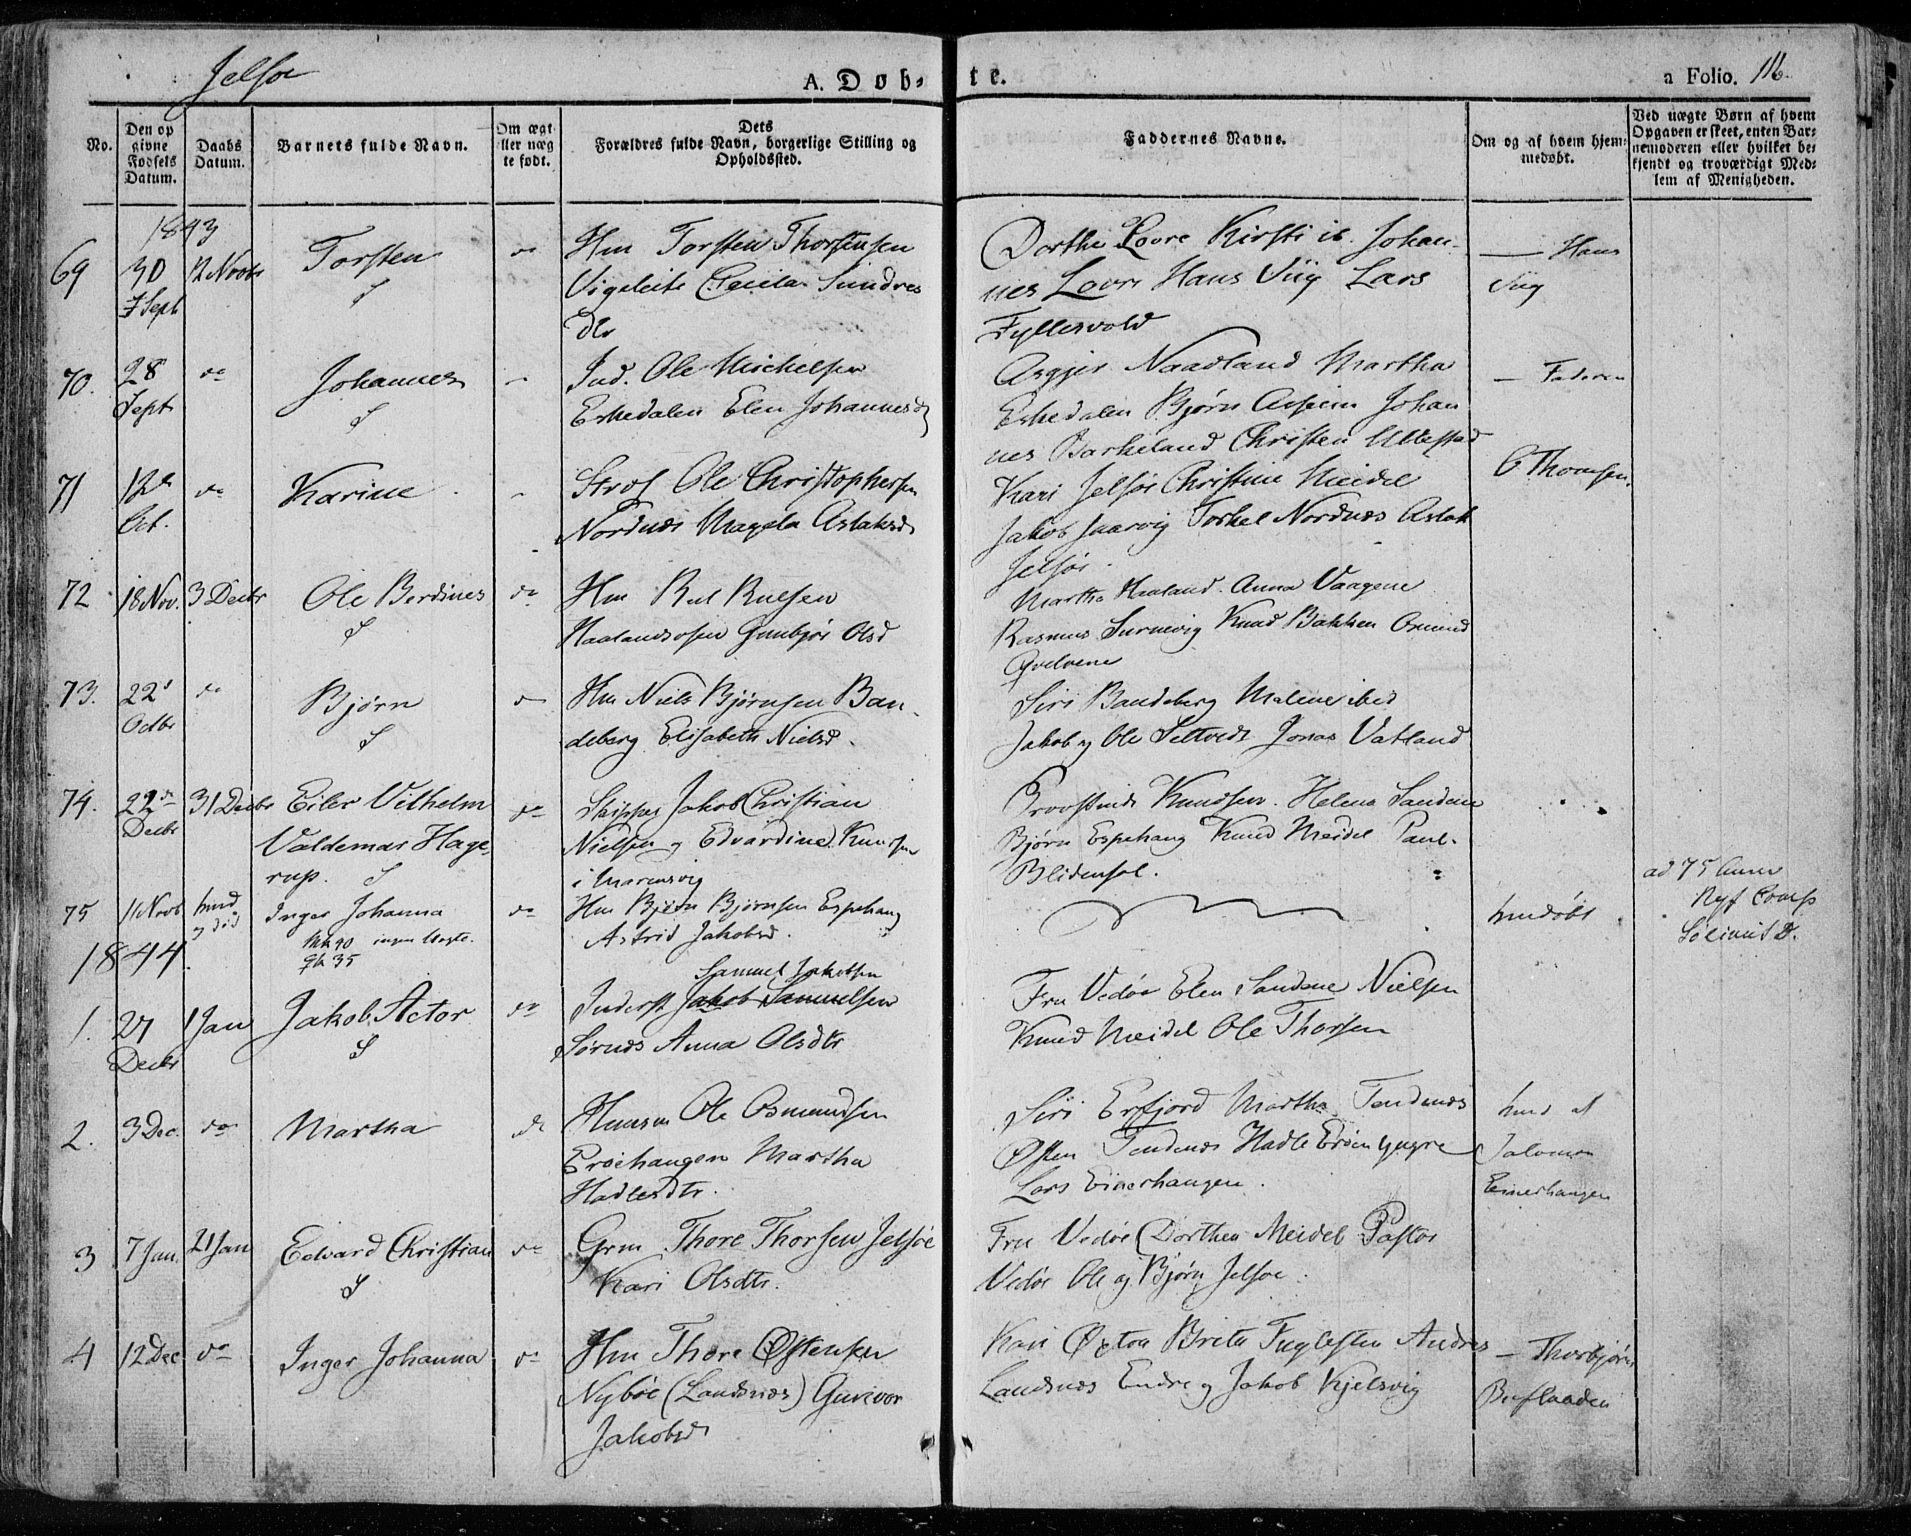 Jelsøe
A. Døb-
te.
a Folio. 116.
No.
Den op
givne
Fødsels
Datum.
Daabs
Datum.
Barnets fulde Navn.
Om ægt
eller uæg
te født.
Dets
Forældres fulde Navn, borgerlige Stilling og
Opholdssted.
Faddernes Navne.
Om og af hvem hjem-
medøbt.
Ved uægte Børn af hvem
Opgaven er skeet, enten Bar-
nemoderen eller hvilket be-
kjendt og troværdigt Med-
lem af Menigheden.
1843
69
30
Sept
12 Novbr
Torsten
do
Hm Torsten Thorstensen
Vigeleite Cecilia Sundres
dtr
Dorthe Lovre Kirsti ib. Johan-
nes Lovre Hans Tüg Lars
Fyllesvold
— Hans
Tüg
70.
28
Sept
do
Johannes
Ind. Ole Michelsen
Eskedalen Elen Johannesd
Asgjer Naadland Martha
Eskedalen Bjørn Aasheim Johan
nes Barkeland Christen Ullestad
— Faderen
71
12te
Oct.
do
Karine
Ole Christophersen
Nordnæs Magela Aslaksd
Kari Jelsøe Christine Meidel
Jakob Jaarvig Torkel Nordnæs Aslak
Jelsøe.
O Thomsen.
72
18 Nov.
3 Decbr
Ole Berdines
do
Hm Rul Rulsen
Haalandsosen Gunbjør Olsd
Martha Haaland. Anna Vaagene
Rasmus Surnevig Knud Bakken Osmund
Qvelvene
73.
22d
Octbr
do
Bjørn
do
Hm Niels Bjørnsen Ban-
deberg Elisabeth Nielsd.
Siri Bandeberg Malene ibid
Jakob og Ole Seltveit Jonas Vatland
74.
22de
Decbr
31 Decbr
Eiler Vilhelm
Valdemar Hage-
rup.
do
Skipper Jakob Christian
Nielsen og Edvardine Knudsen
i Marensvig
Provstinde Knudsen. Helene Sandene
Bjørn Espehaug Knud Meidel Paul-
Blidensol.
75
11 Novb
hmd
og død
Inger Johanna
Mk 40 ingen Msgte.
Qk 35
do
Hm Bjørn Bjørnsen Espehaug
Astrid Jakobsd.
hmdøbt
ad 75 Anm
1844.
1.
27
Decbr
1 Jan
Jakob Actor
do
Samuel Jakobsen
Inderst Jakob Samuelsen
Sørnæs Anna Olsdtr
Fru Vedøe Elen Sandene Nielsen
Knud Meidel Ole Thorsen
2.
3 Dec.
do
Martha
do
Huusm Ole Osmundsen
Erøehaugen Martha
Hadlesdtr.
Siri Erfjord Martha Tendenæs
Østen Tendenæs Hadle Erøen yngre
Lars Einerhaugen.
hmd af
Salomon
Einerhaugen
3
7 Jan.
21 Jan
Edvard Christian
do
Grm Thore Thorsen Jelsøe
Kari Olsdtr.
Fru Vedøe Dorthea Meidel Pastor
Vedøe Ole og Bjørn Jelsøe.
4
12 Dec
do
Inger Johanna
do
Hm Thore Østensen
Nybøe (Landsnæs) Gurivor
Jakobsd
Kari Øxton Brita Fuglesten Andres
Landsnæs Endre og Jakob Kjelsvig
— Thorbjørn